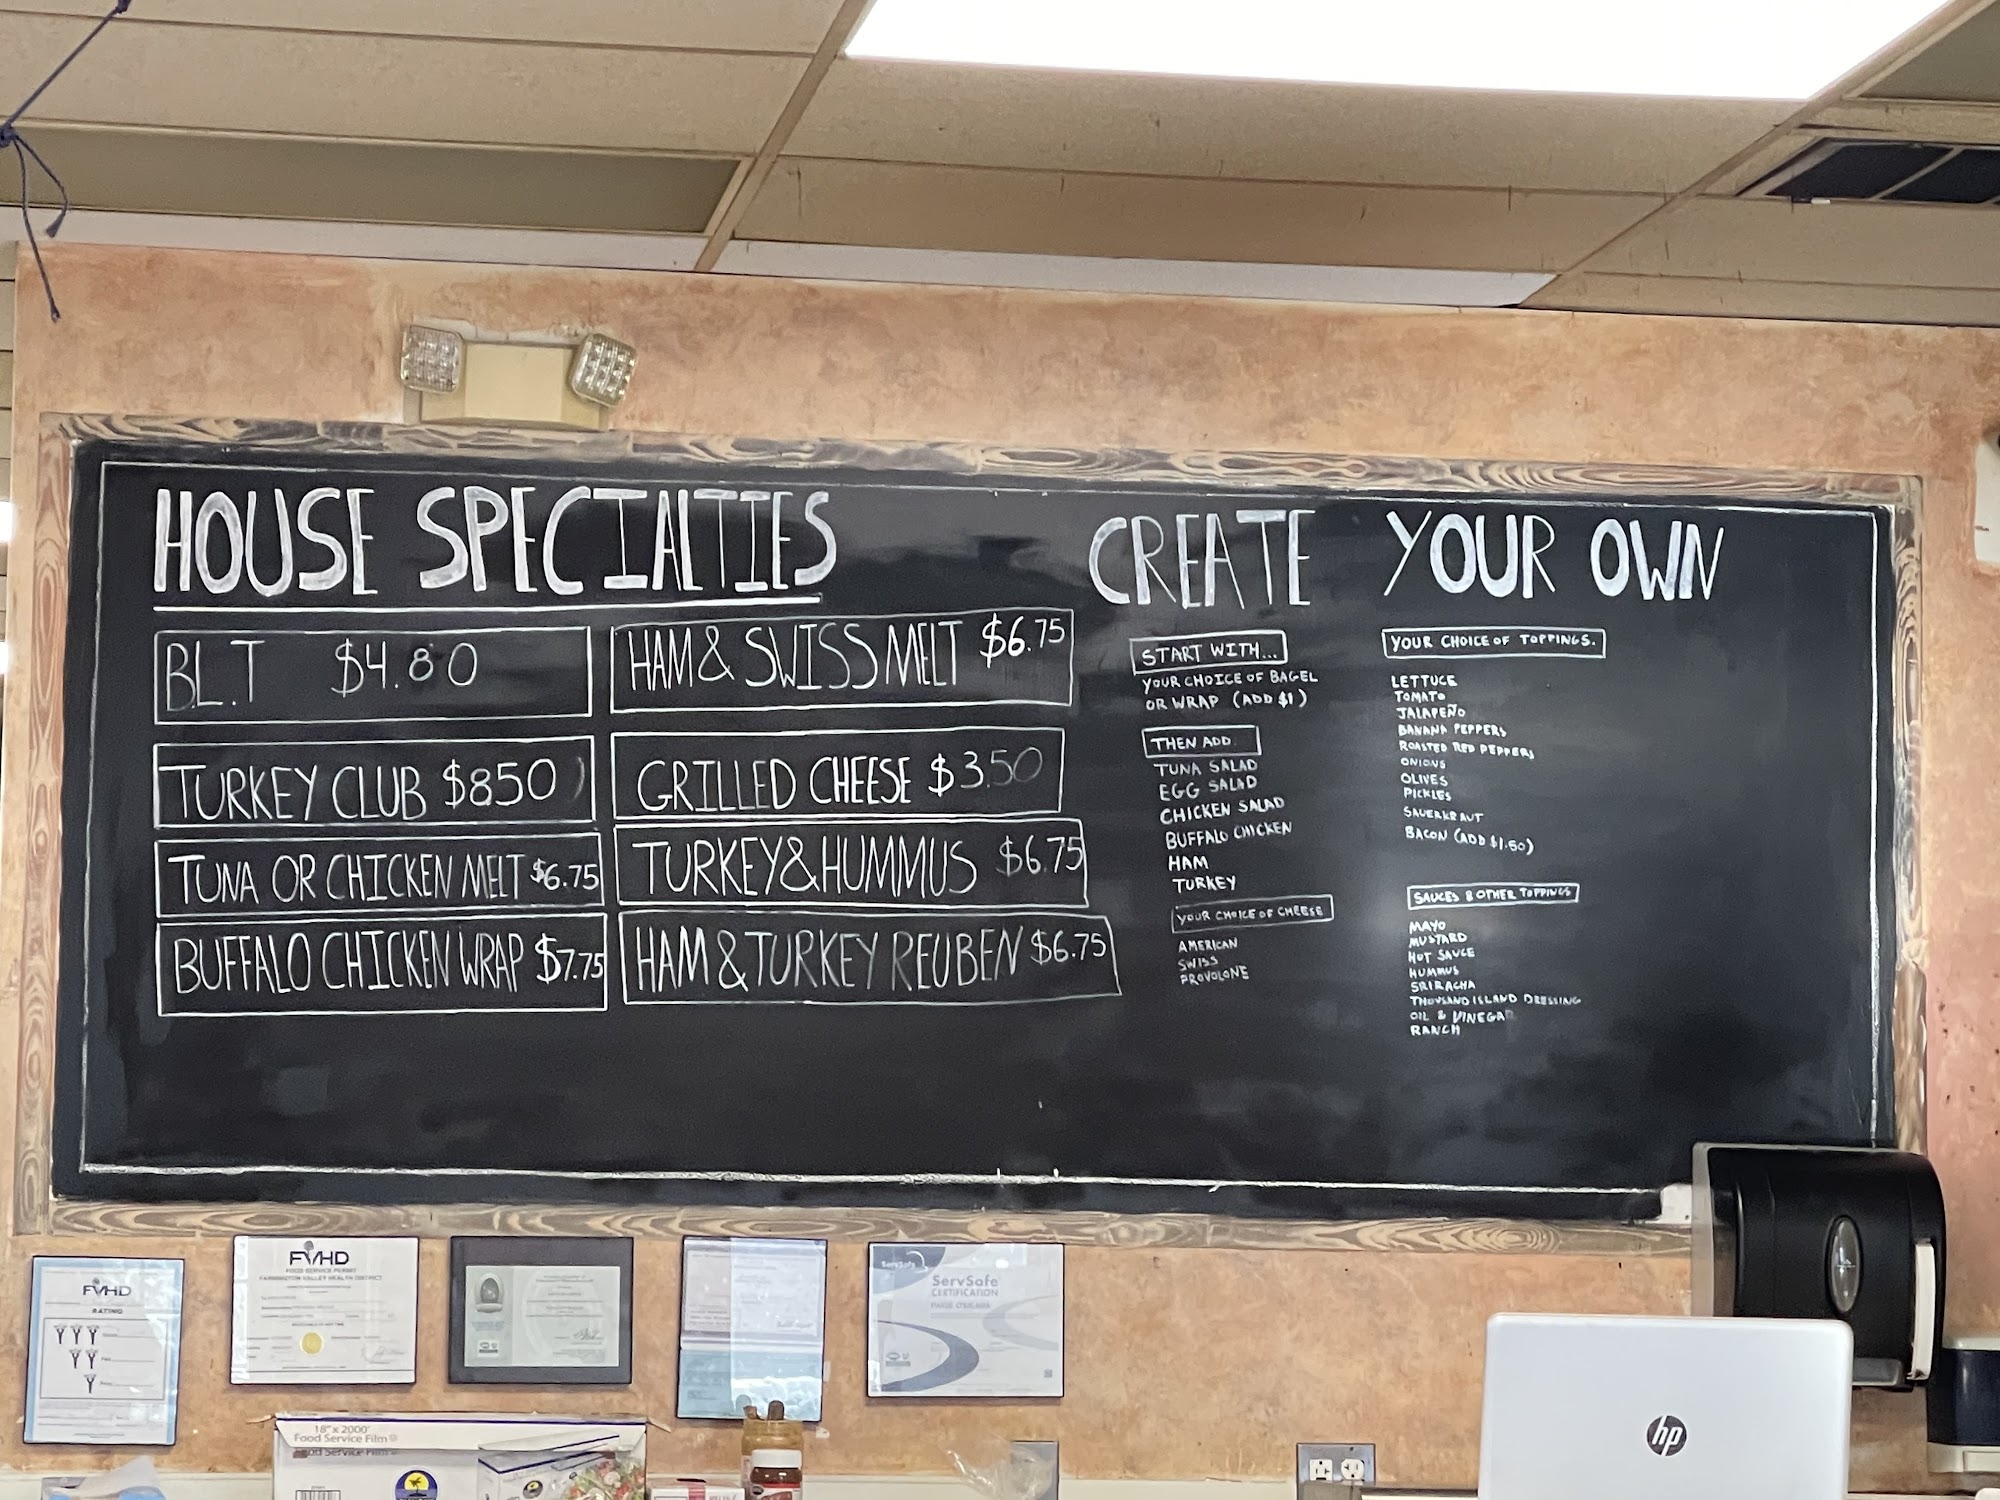 HOUSE SPECIALTIES
B.L.T $4.80
TURKEY CLUB $850
TUNA OR CHICKEN MELT $6.75
BUFFALO CHICKEN WRAP $7.75
HAM & SWISS MELT $6.75
GRILLED CHEESE $3.50
TURKEY & HUMMUS $6.75
HAM & TURKEY REUBEN $6.75
CREATE YOUR OWN
START WITH...
YOUR CHOICE OF BAGEL
OR WRAP (ADD $1)
THEN ADD
TUNA SALAD
EGG SALAD
CHICKEN SALAD
BUFFALO CHICKEN
HAM
TURKEY
YOUR CHOICE OF CHEESE
AMERICAN
SWISS
PROVOLONE
YOUR CHOICE OF TOPPINGS.
LETTUCE
TOMATO
JALAPEÑO
BANANA PEPPERS
ROASTED RED PEPPERS
ONIONS
OLIVES
PICKLES
SAUERKRAUT
BACON (ADD $1.50)
SAUCES & OTHER TOPPINGS
MAYO
MUSTARD
HOT SAUCE
HUMMUS
SRIRACHA
THOUSAND ISLAND DRESSING
OIL & VINEGAR
RANCH
FVHD
RATING
FVHD
FOOD SERVICE PERMIT
FARMINGTON VALLEY HEALTH DISTRICT
ServSafe
ServSafe
CERTIFICATION
18" x 2000'
Food Service Film
hp